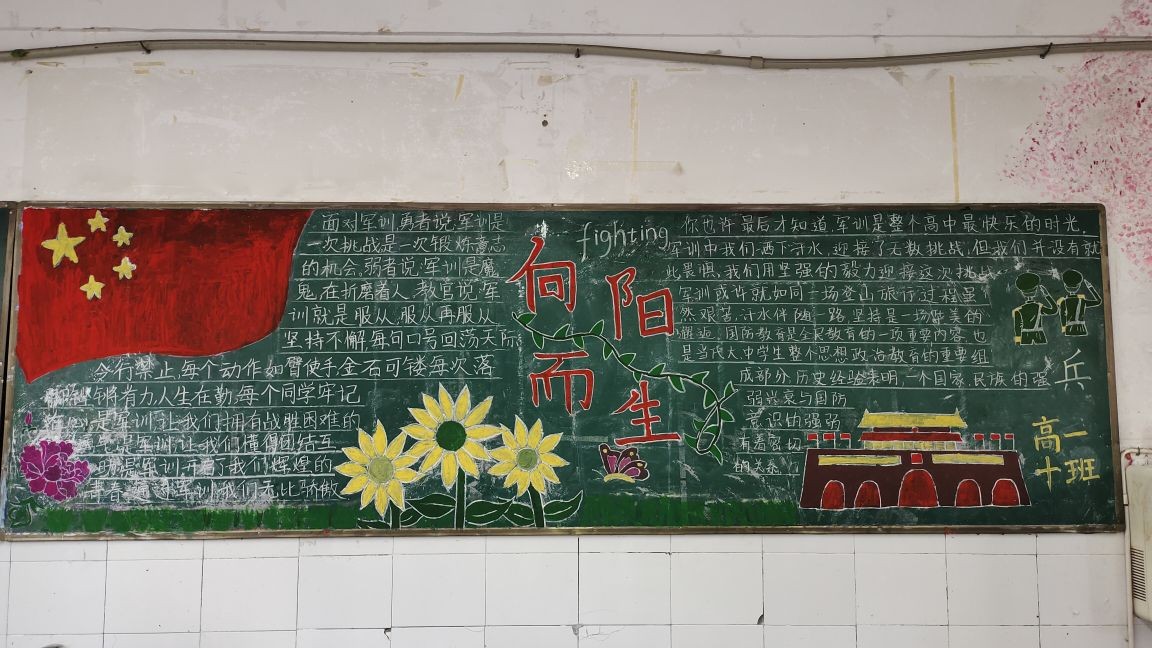 面对军训,勇者说,军训是
一次挑战是一次锻炼意志
的机会。弱者说,军训是魔
鬼,在折磨着人。教官说:军
训就是服从,服从再服从
坚持不懈每句口号回荡天际
令行禁止,每个动作如臂使手金石可镂每次落
将有力,人生在勤,每个同学牢记
是军训让我们拥有战胜困难的
是军训让我们懂得团结互
是军训开启了我们辉煌的
军训我们无比骄傲
fighting
向阳
而生
你也许最后才知道,军训是整个高中最快乐的时光,
军训中我们洒下汗水,迎接了无数挑战,但我们并没有就
此畏惧,我们用坚强的毅力迎接这次挑战
军训或许就如同一场登山旅行过程虽
然艰苦,汗水伴随一路,坚持是一场壮美的
邂逅。国防教育是全民教育的一项重要内容,也
是当代大中学生整个思想政治教育的重要组
成部分,历史经验表明,一个国家,民族的强
弱兴衰与国防
意识的强弱
有着密切
的关系。
兵
高一
十班